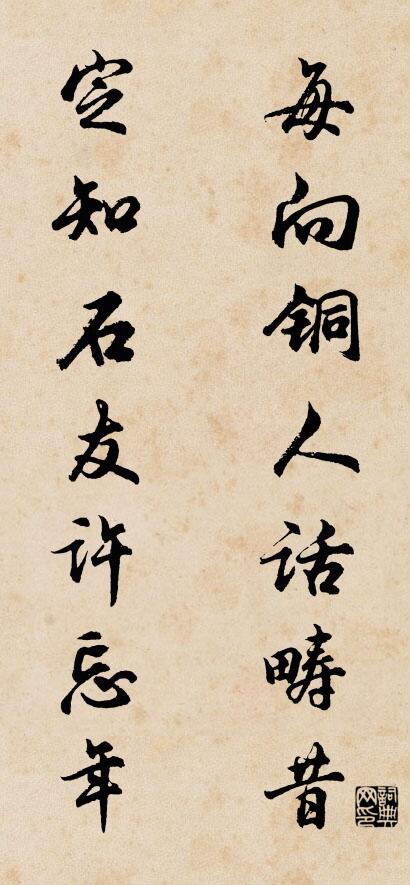 每向铜人话畴昔
定知石友许忘年
词典网印